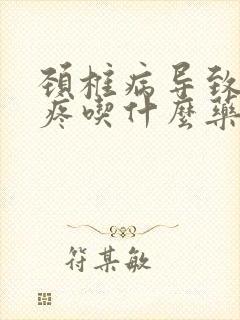 頸椎病导致
疼喫什麼藥
符某敏